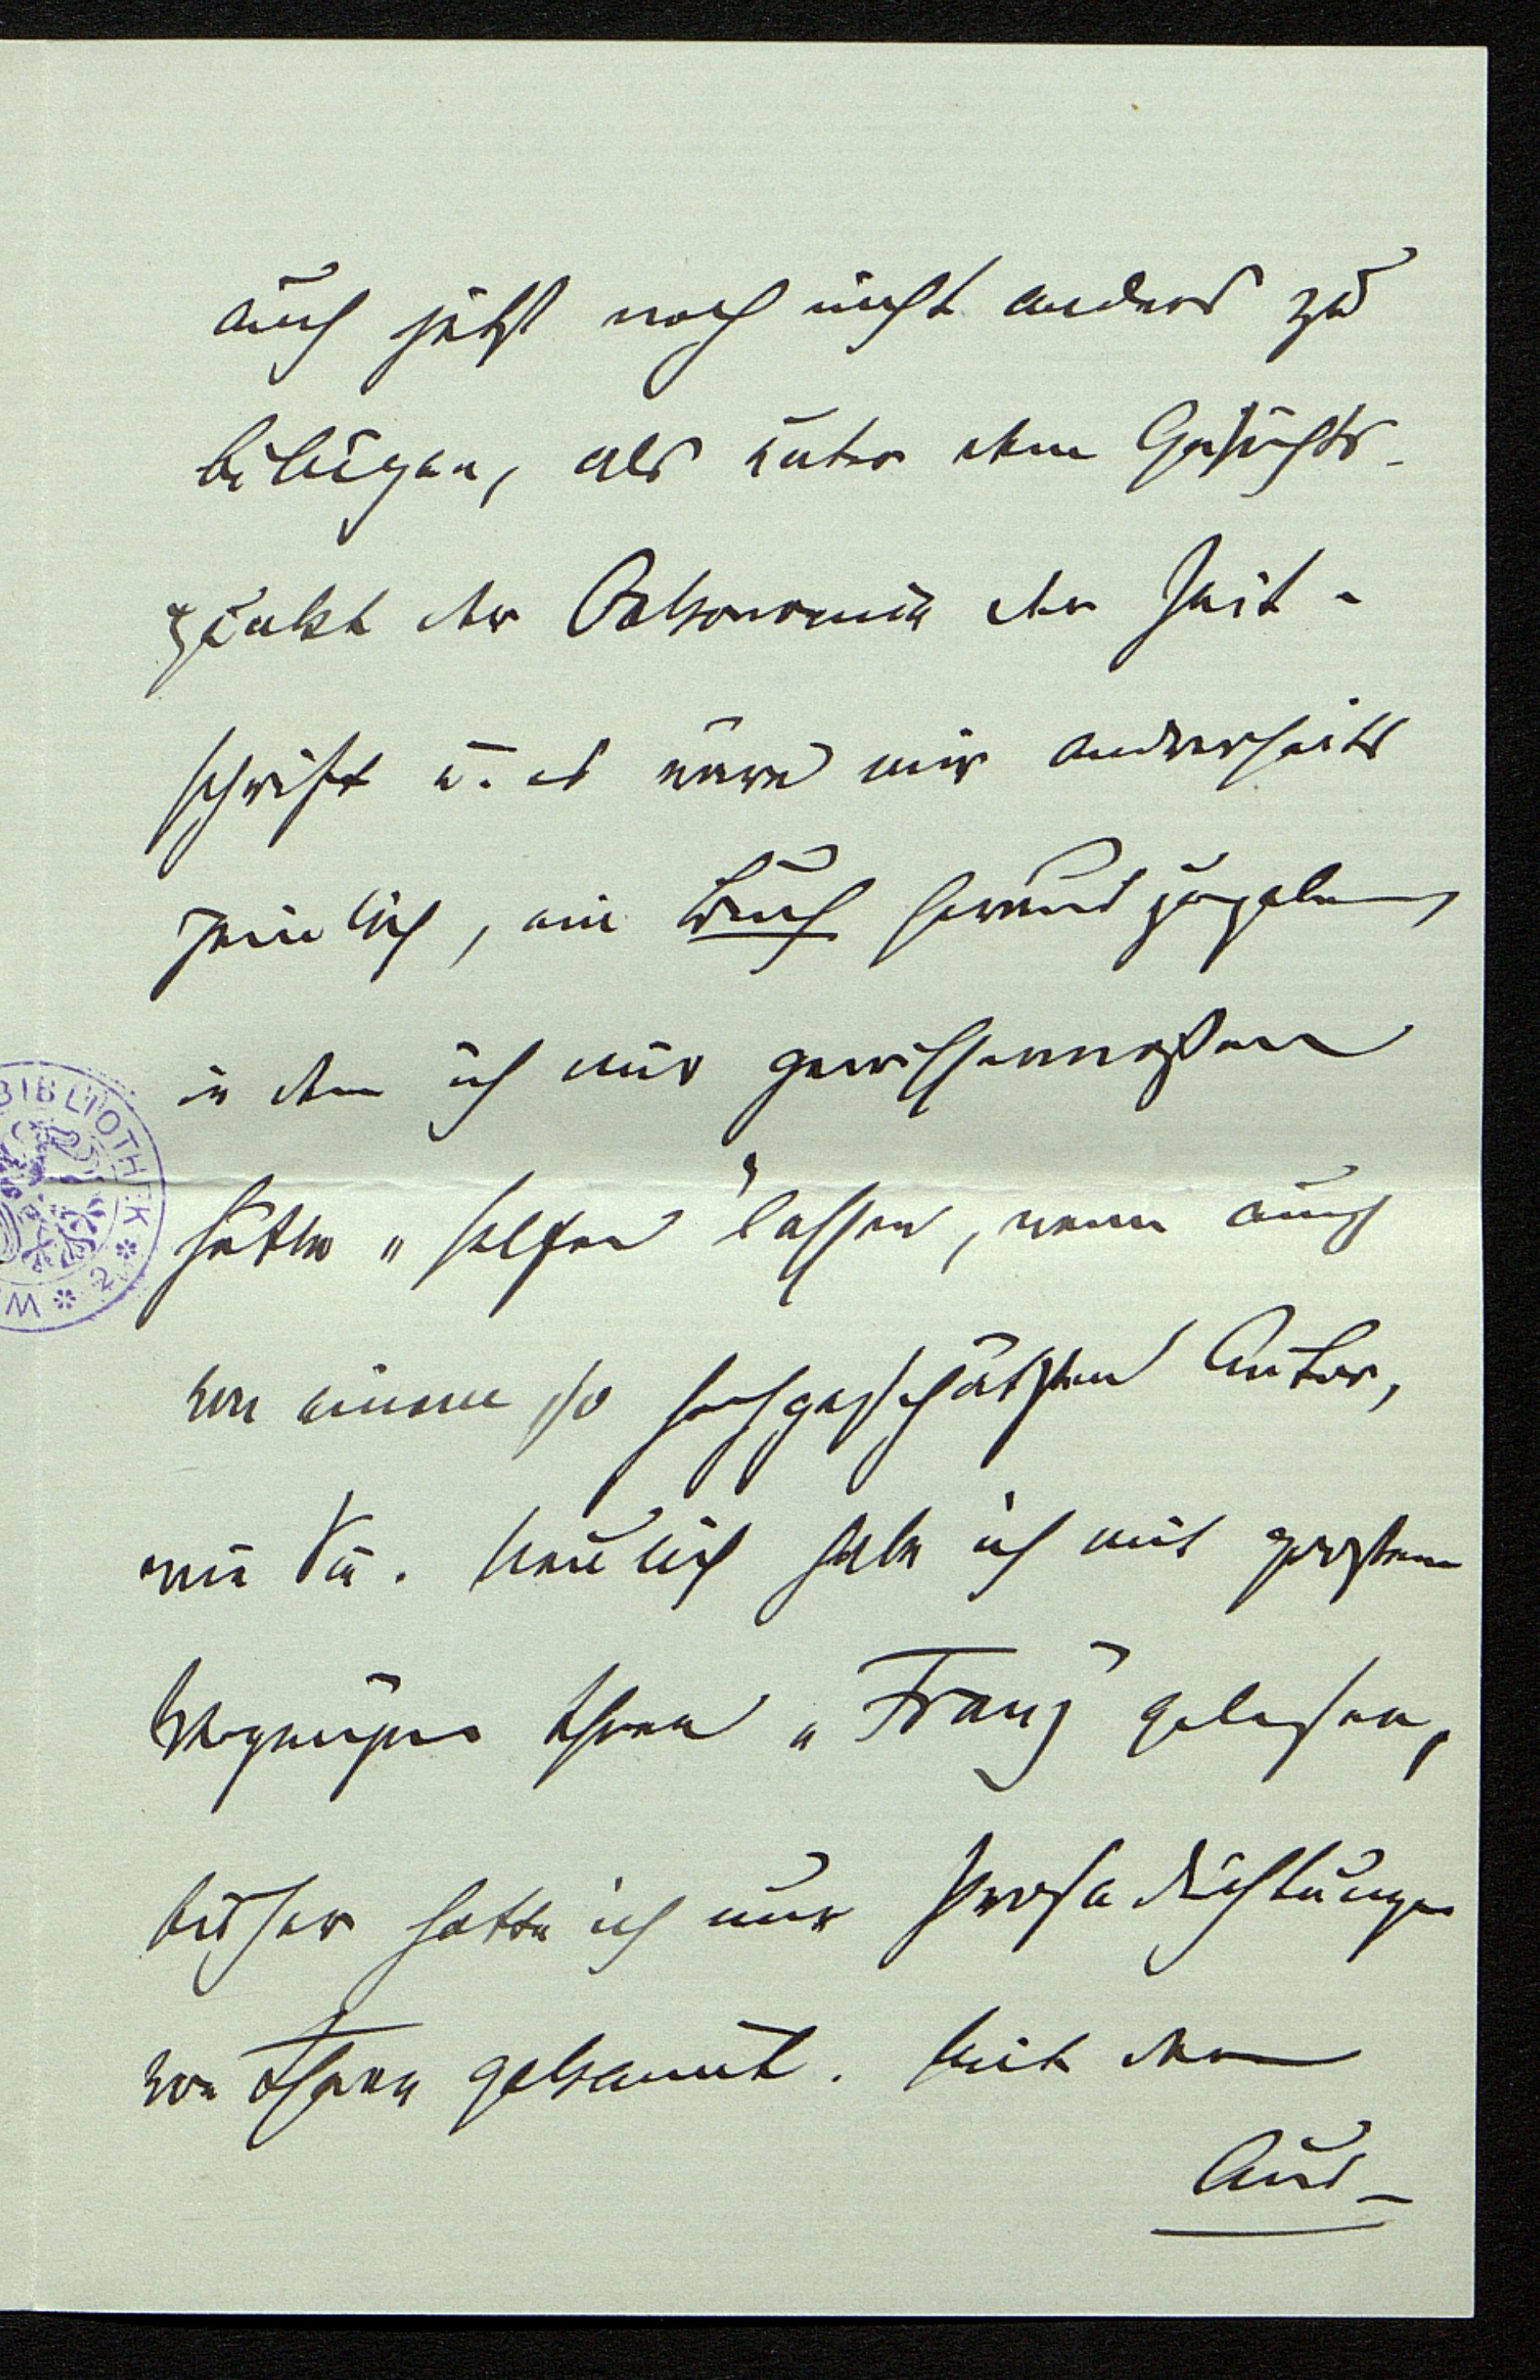 auch jetzt noch nicht anders zu
billigen, als unter dem Gesichts-
punkt der Oekonomie der Zeit-
schrift u. es wäre mir anderseits
peinlich, ein Buch herauszugeben,
in dem ich mir gewissermaßen
hätte „helfen“ lassen, wenn auch
von einem so hochgeschätzten Autor,
wie Sie. Neulich habe ich mit großem
Vergnügen Ihren „Franz“ gelesen,
bisher hatte ich nur Prosadichtungen
von Ihnen gekannt. Mit dem
Aus-
BIBLIOTHEK
W